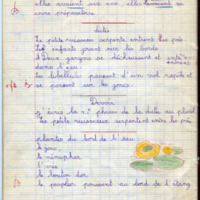 elles avaient sur une
entre préparatoire
Dictée
Le petit ruisseau serpente entre les prés
Les enfants sur les bords
Deux garçons se déchaussent et entrent
dans l'eau
Les libellules passent d'un vol rapide et
se posent sur les joncs.
Devoir
J'écris la 1e phrase de la dictée au pluriel
Les petits ruisseaux serpentent entre les prés
plantes du bord de l'eau
le jonc
le nénuphar
l'iris
le bouton d'or
le peuplier poussent au bord de l'étang